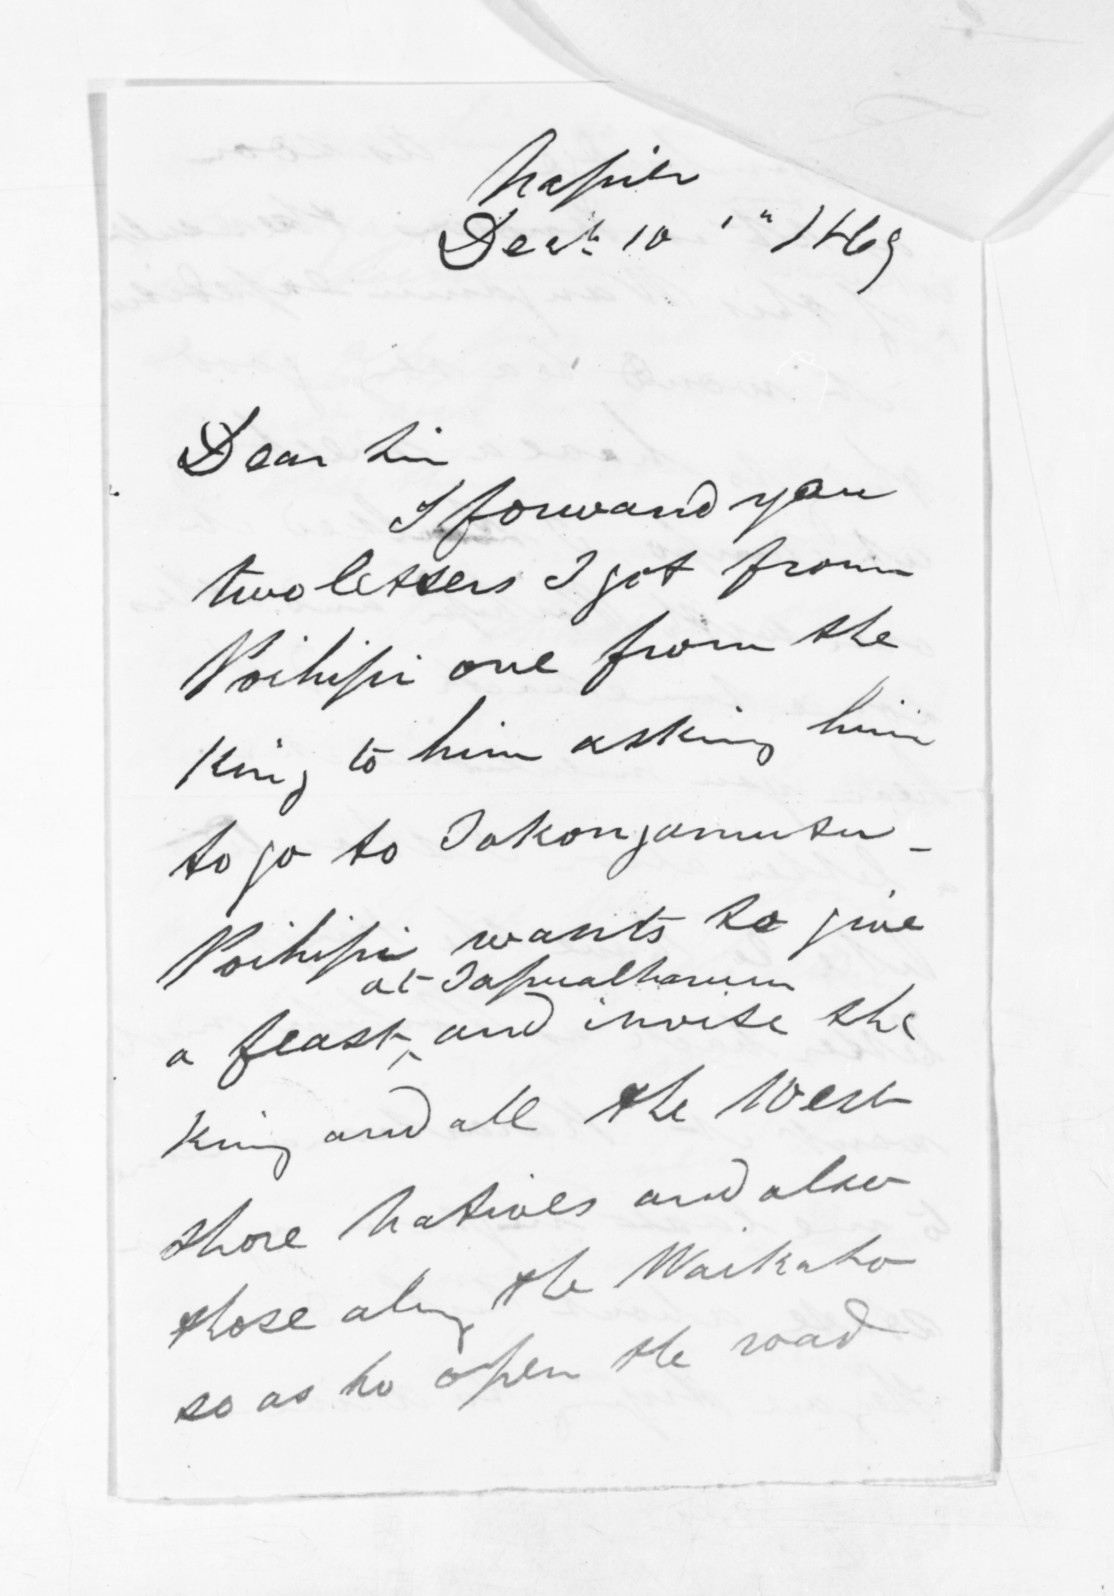 Napier
Decr 10th 1869
Dear Sir
I forward you
two letters I got from
Poihipi one from the
King to him asking him
to go to Tokangamutu -
Poihipi wants to give
at Tapuaeharuru
a feast and invite the
King and all the West
Shore Natives and also
those along the Waikato
so as to open the road